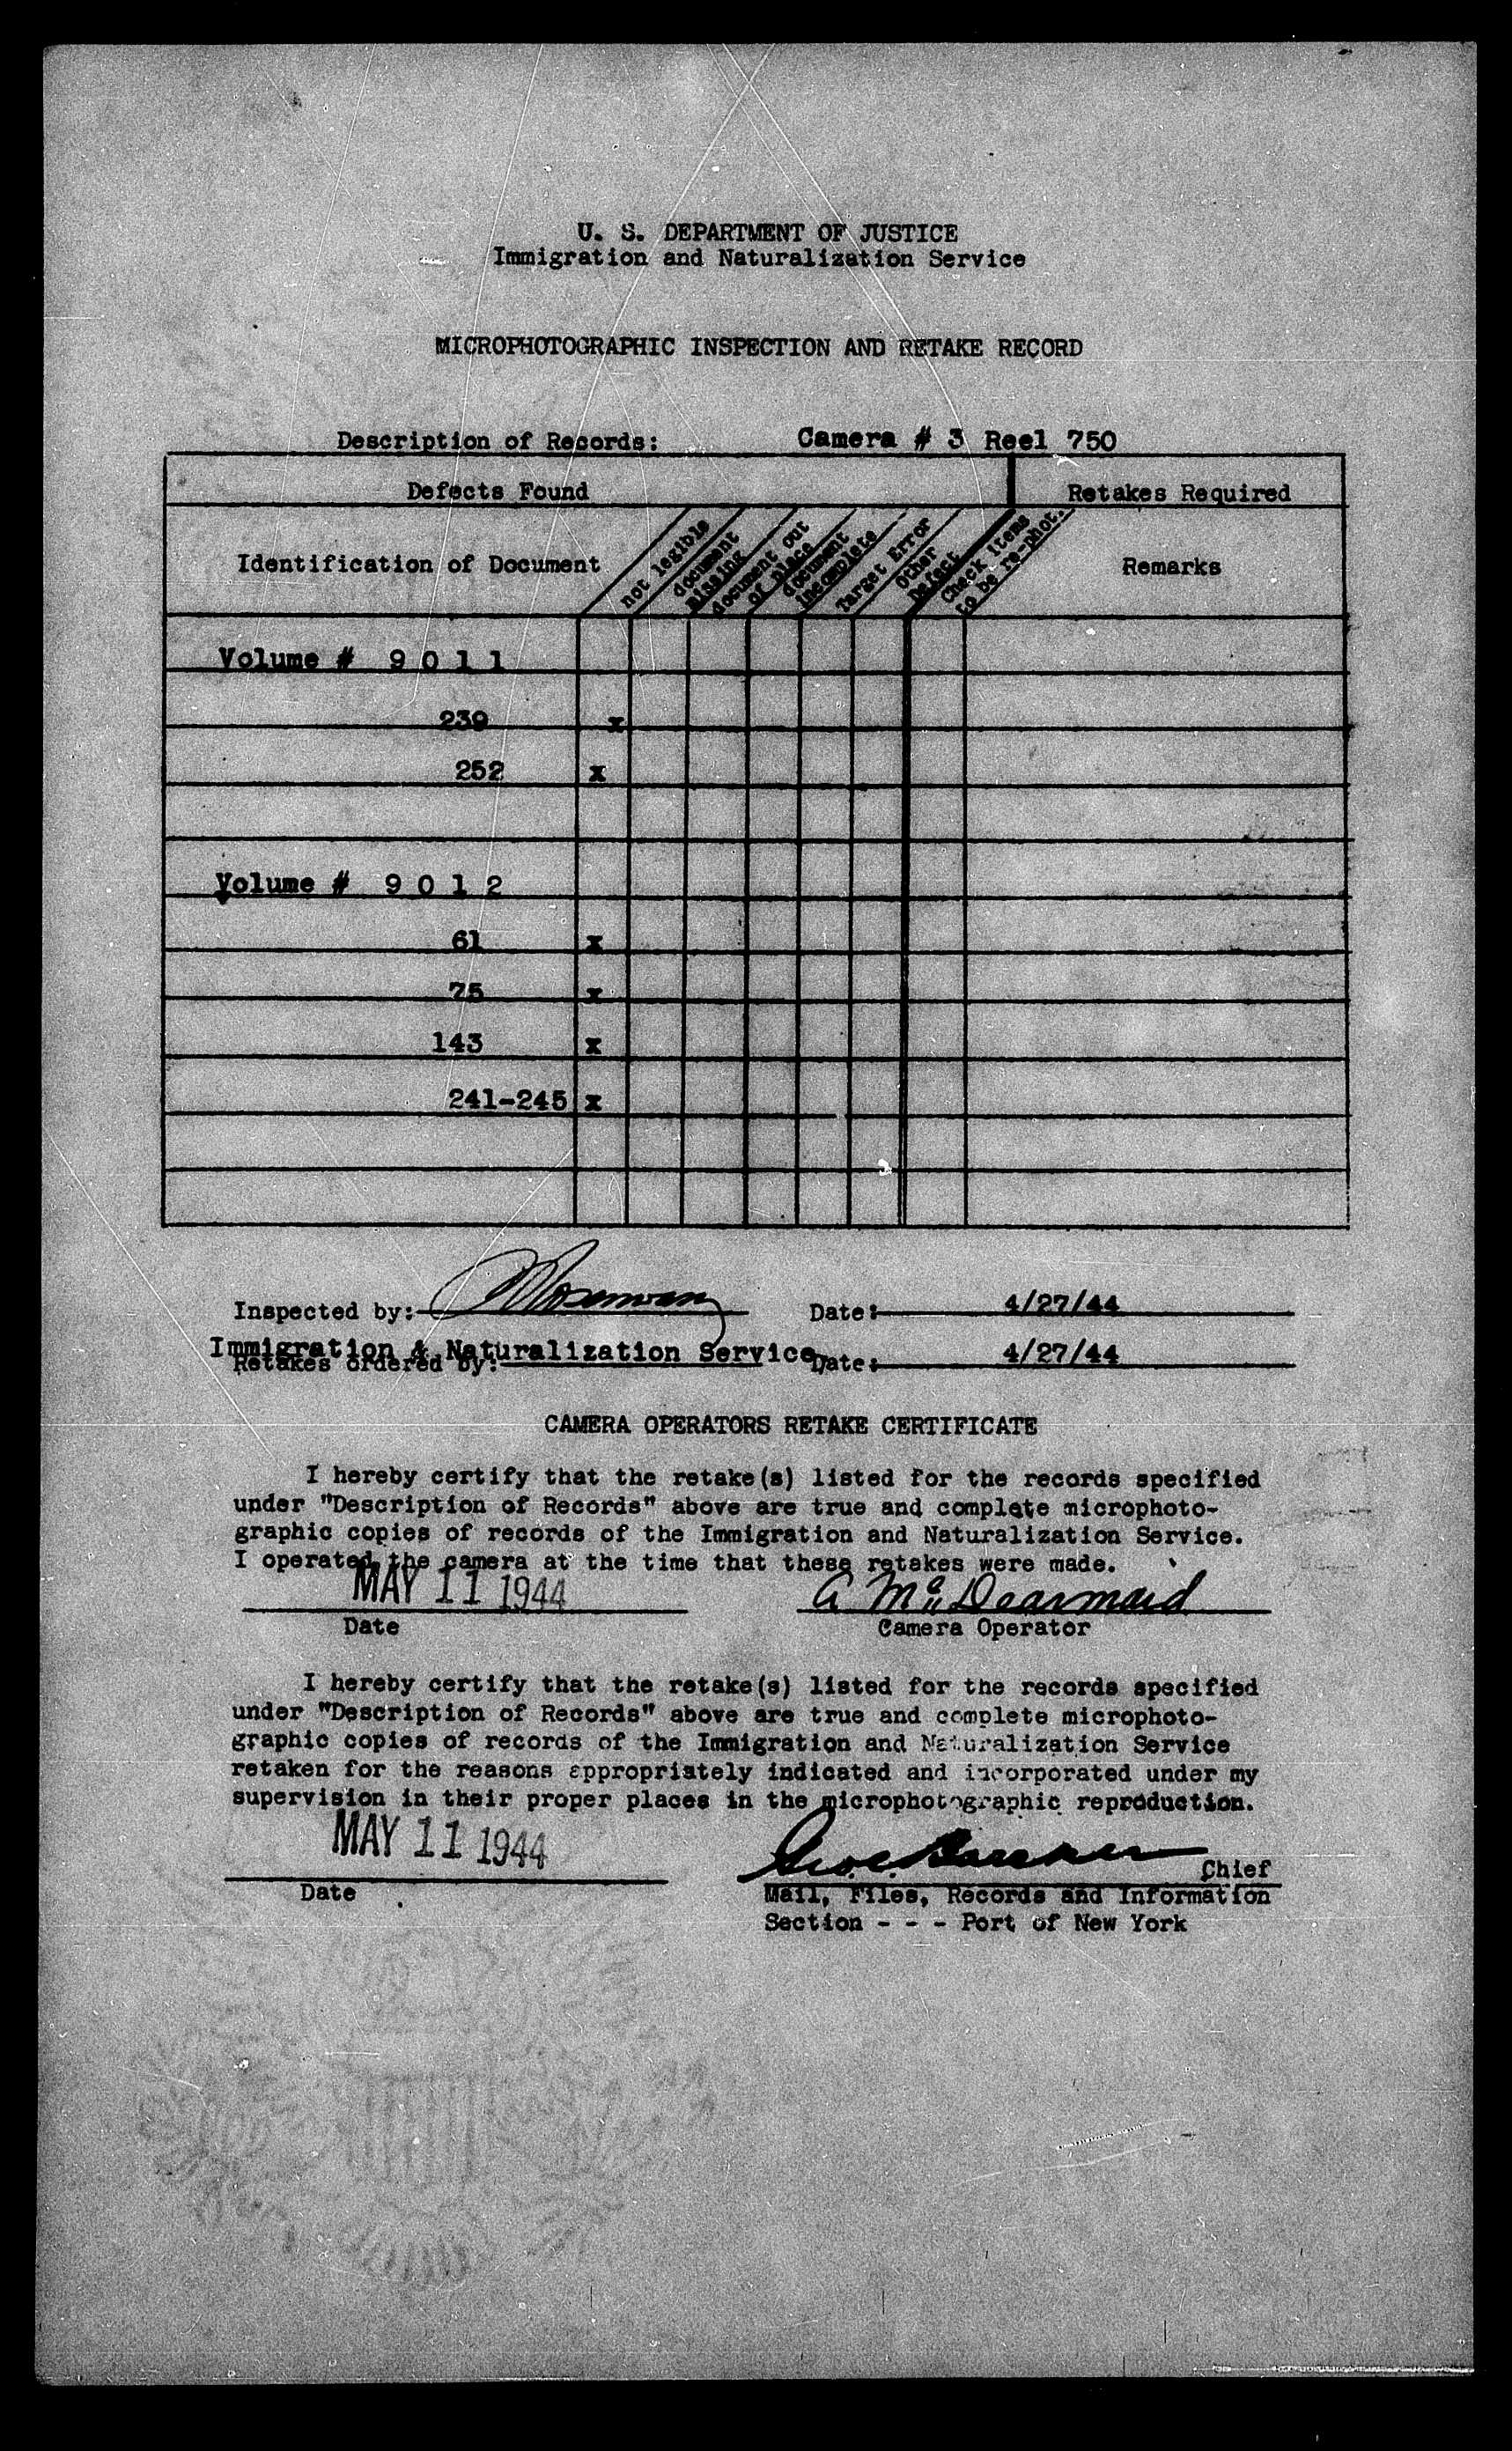 U. S. DEPARTMENT OF JUSTICE
Immigration and Naturalization Service
MICROPHOTOGRAPHIC INSPECTION AND RETAKE RECORD
Description of Records: Camera # 3 Reel 750
Defects Found Retakes Required
Identification of Document not legible document missing document out of place document incomplete Target Error Other Defect Check items to be re-phot. Remarks
Volume # 9 0 1 1
239 x
252 x
Volume # 9 0 1 2
61 x
75 x
143 x
241-245 x
Inspected by: Date: 4/27/44
Immigration & Naturalization Service
Retakes ordered by: Date: 4/27/44
CAMERA OPERATORS RETAKE CERTIFICATE
I hereby certify that the retake(s) listed for the records specified
under "Description of Records" above are true and complete microphoto-
graphic copies of records of the Immigration and Naturalization Service.
I operated the camera at the time that these retakes were made.
MAY 11 1944 A McDearmaid
Date Camera Operator
I hereby certify that the retake(s) listed for the records specified
under "Description of Records" above are true and complete microphoto-
graphic copies of records of the Immigration and Naturalization Service
retaken for the reasons appropriately indicated and incorporated under my
supervision in their proper places in the microphotographic reproduction.
MAY 11 1944
Chief
Date Mail, Files, Records and Information
Section - - - Port of New York